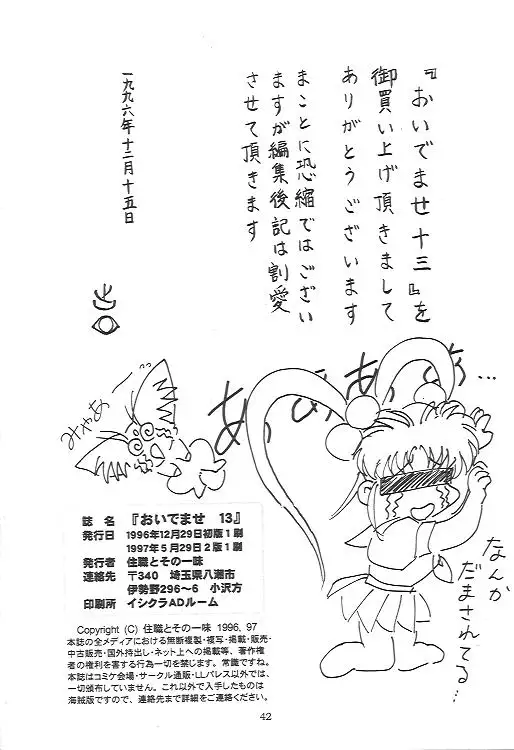 『おいでませ十三』を
御買い上げ頂きまして
ありがとうございます
まことに恐縮ではござい
ますが編集後記は割愛
させて頂きます
一九九六年十二月十五日
みゃあーっ
あぁあぁ…
なんか
だまされてる…
誌 名 『おいでませ 13』
発行日 1996年12月29日初版1刷
1997年5月29日2版1刷
発行者 住職とその一味
連絡先 〒340 埼玉県八潮市
伊勢野296〜6 小沢方
印刷所 イシクラADルーム
Copyright (C) 住職とその一味 1996, 97
本誌の全メディアにおける無断複製・複写・掲載・販売・
中古販売・国外持出し・ネット上への掲載等、著作権
者の権利を害する行為一切を禁じます。常識ですね。
本誌はコミケ会場・サークル通販・LLパレス以外では、一
切頒布していません。これ以外で入手したものは
海賊版ですので、連絡先まで詳細をご連絡ください。
42